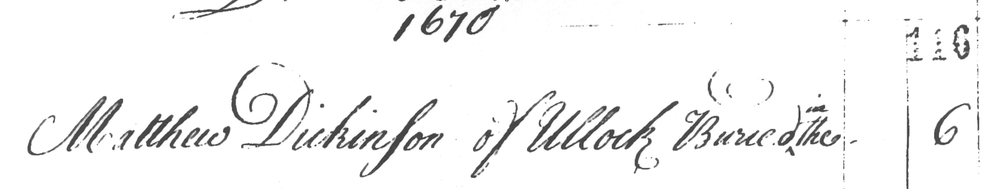 1670
116
Matthew Dickinson of Ullock Buried in the 6